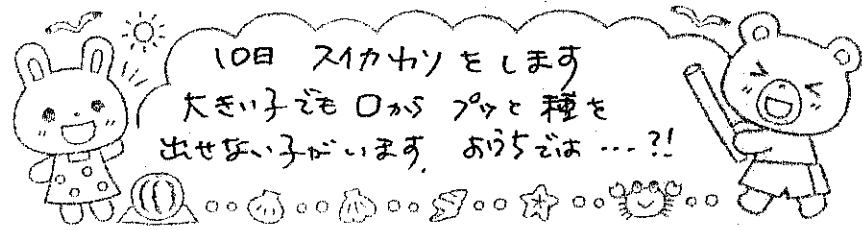 10日 スイカわりをします
大きい子でも口からプッと種を
出せない子がいます。おうちでは…?!